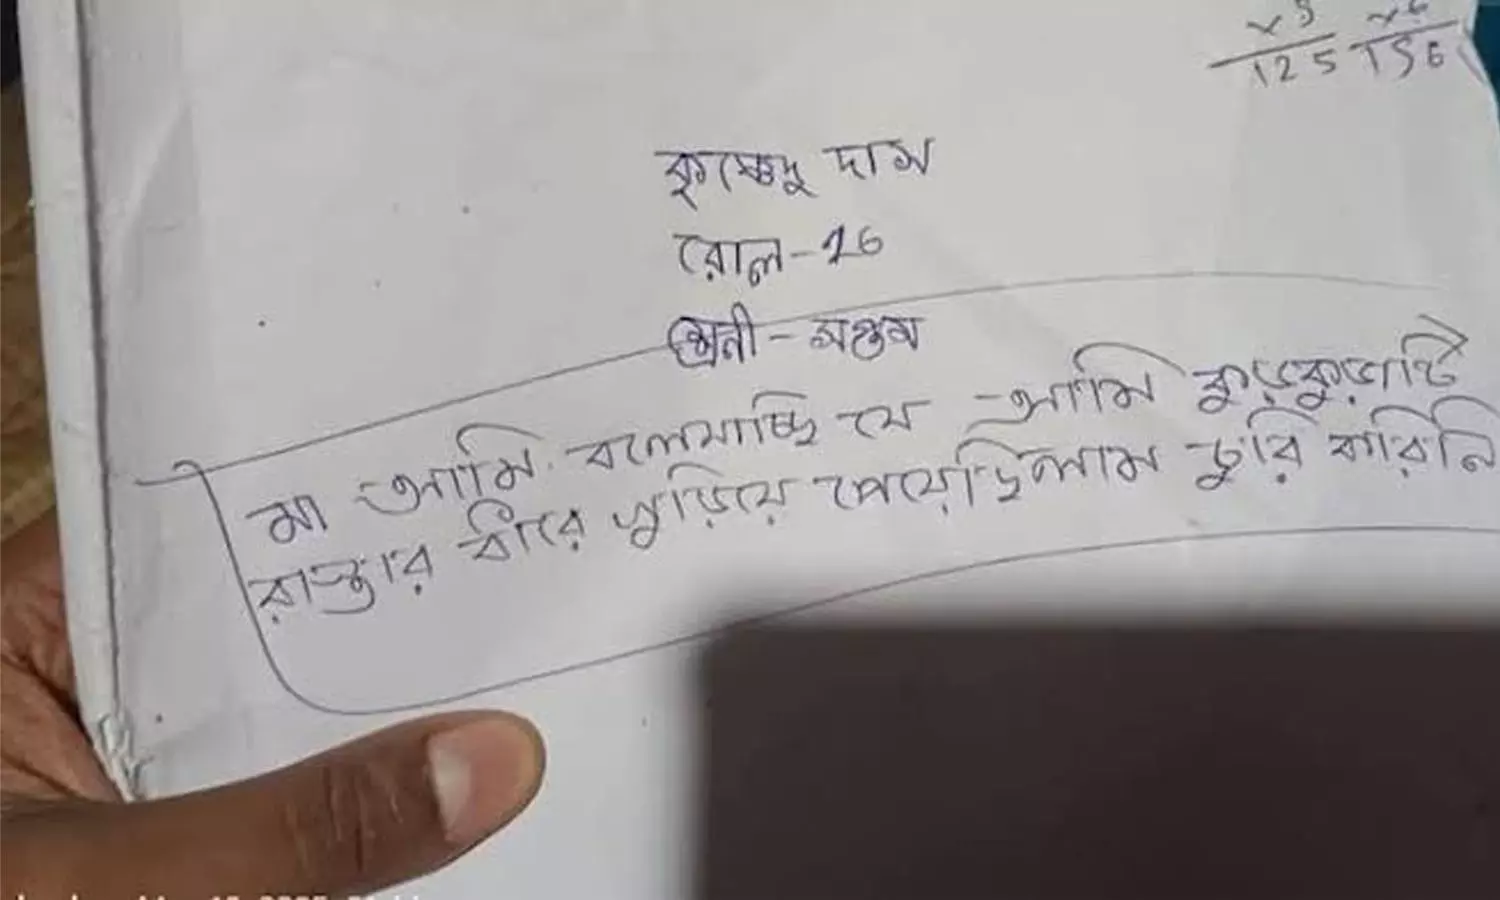 ×5 ×6
125 156
কৃষ্ণেন্দু দাস
রোল-26
শ্রেনী-সপ্তম
মা আমি বলেযাচ্ছি যে আমি কুড়কুড়াটি
রাস্তার ধীরে কুড়িয়ে পেয়েছিলাম চুরি করিনি